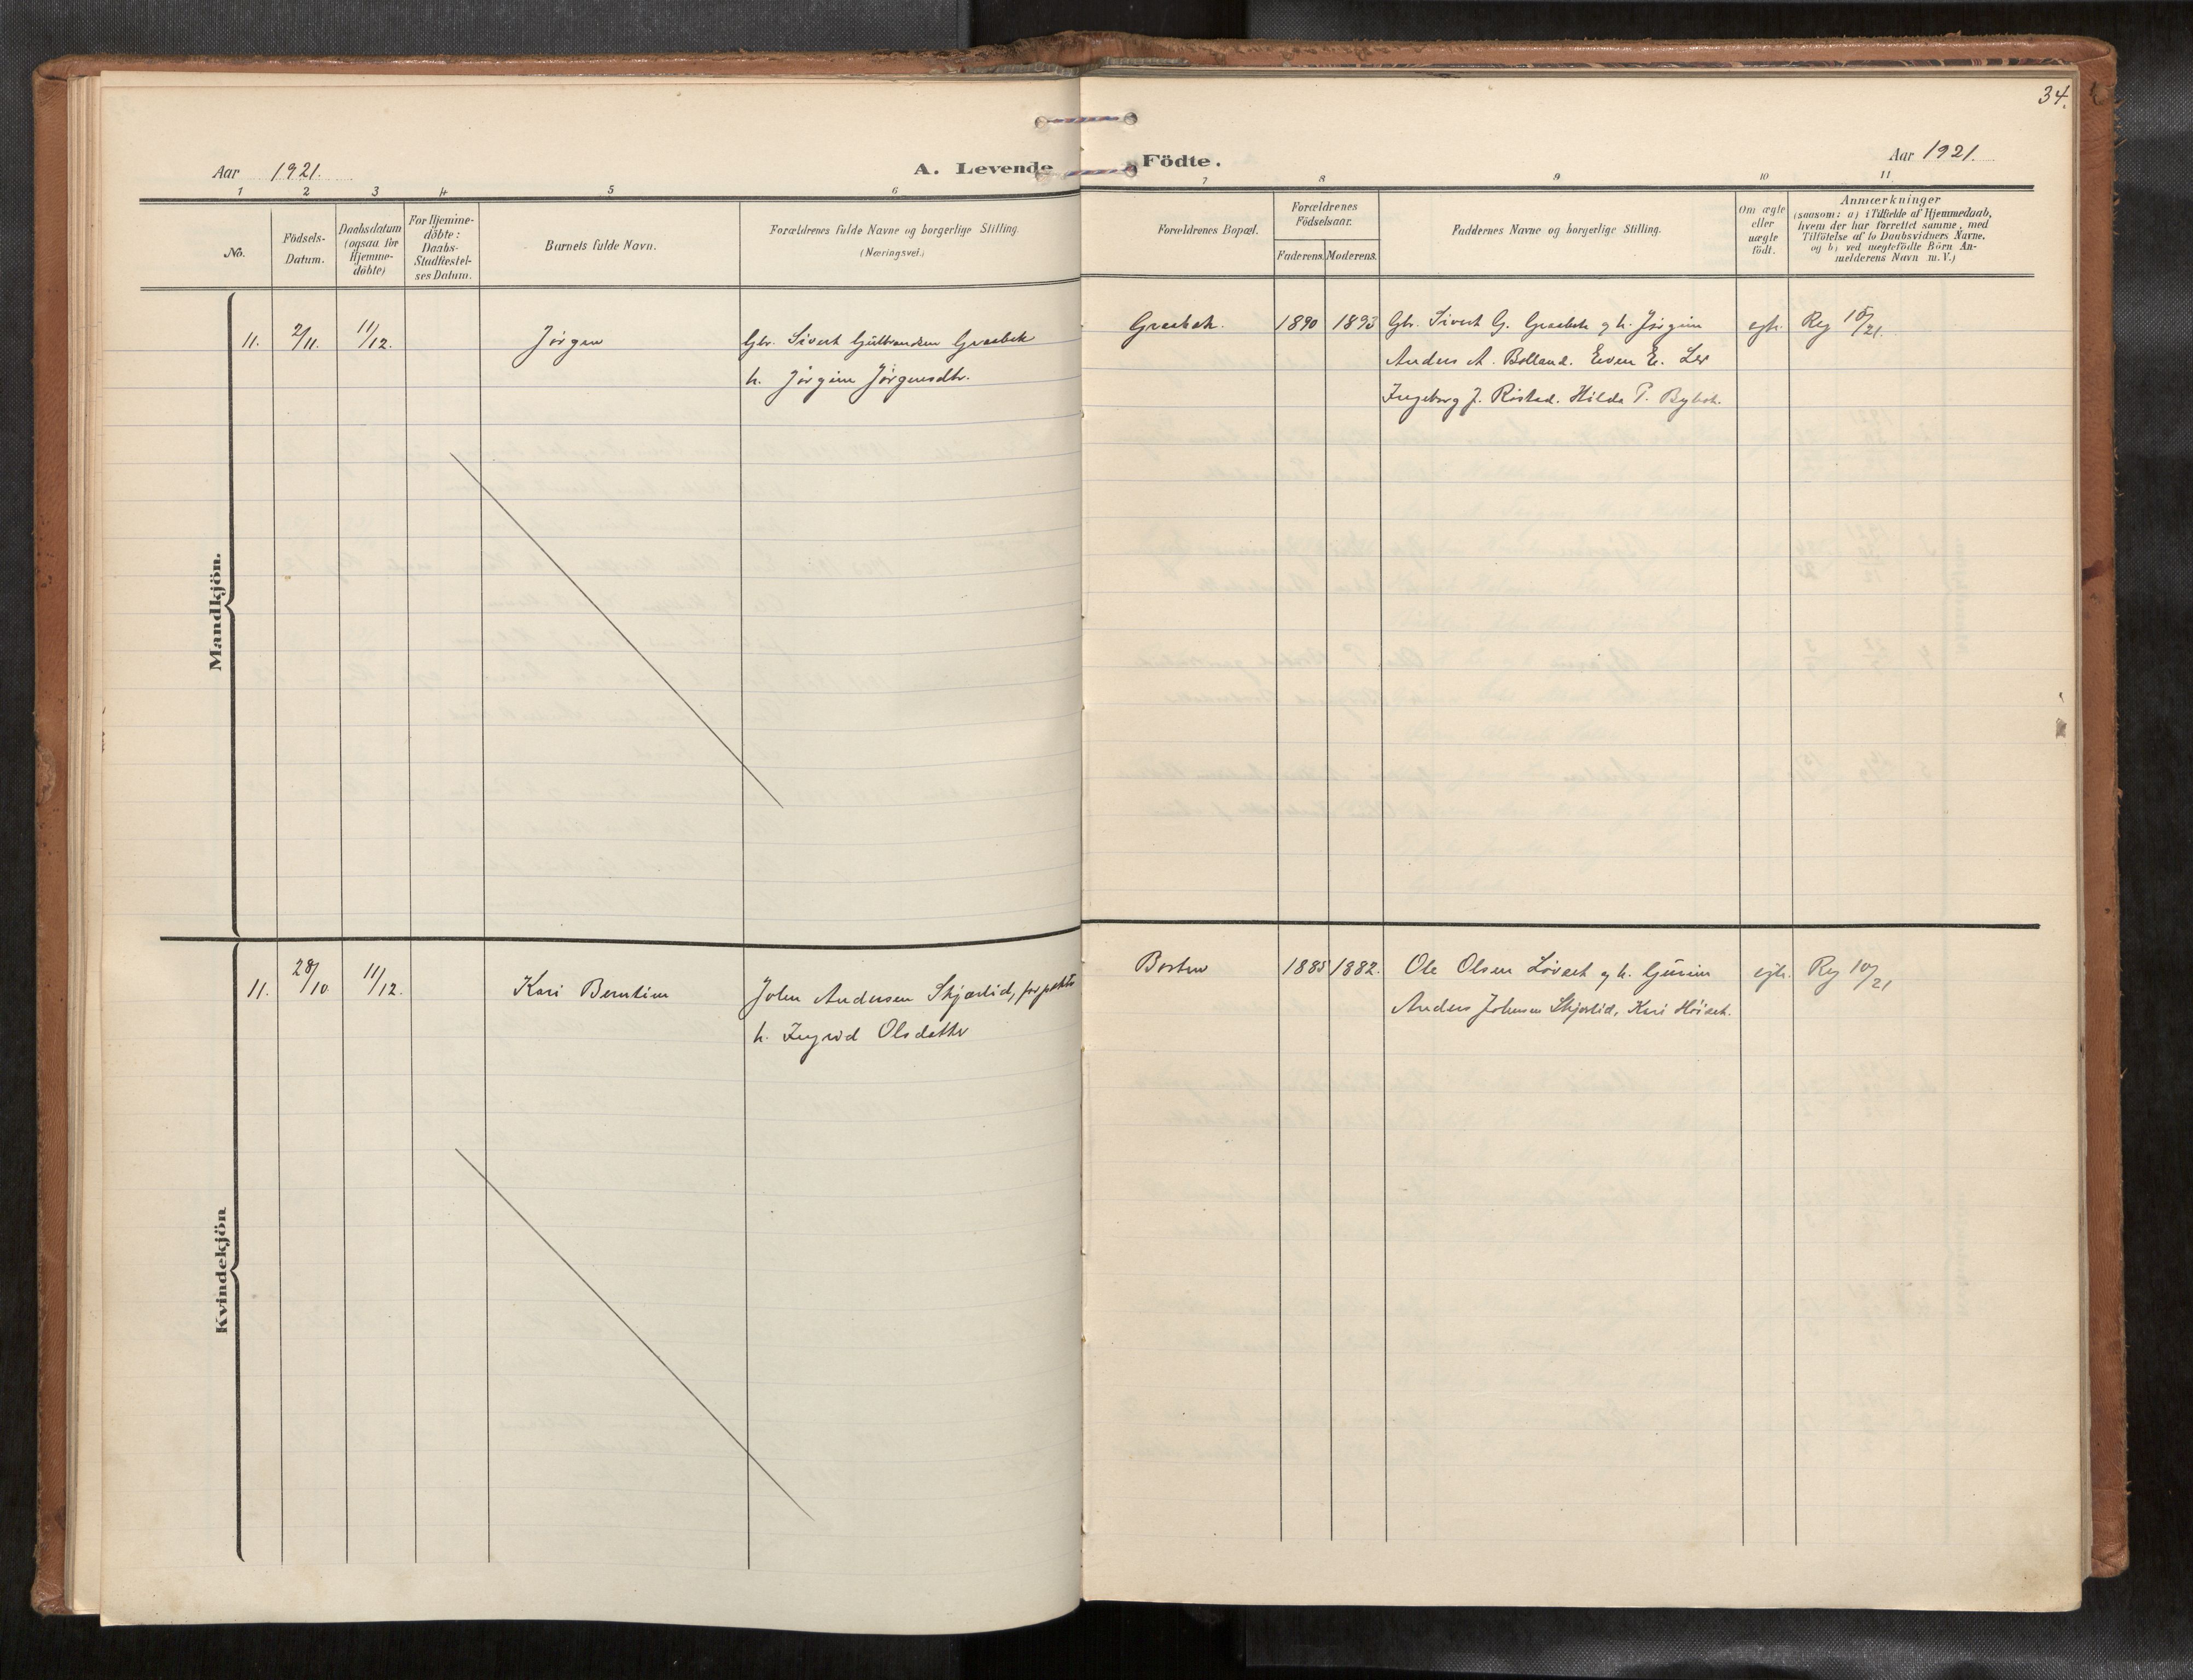 34.
Aar 1921.
A. Levende Födte.
Aar 1921.
1 2 3 4 5 6 7 8 9 10 11
No.
Födsels-
Datum.
Daabsdatum
(ogsaa for
Hjemme-
döbte)
For Hjemme-
döbte:
Daabs-
Stadfæstel-
ses Datum.
Barnets fulde Navn.
Forældrenes fulde Navne og borgerlige Stilling.
(Næringsvei.)
Forældrenes Bopæl.
Forældrenes
Födselsaar.
Faderens. Moderens.
Faddernes Navne og borgerlige Stilling.
Om ægte
eller
uægte
födt.
Anmærkninger
(saasom: a) i Tilfælde af Hjemmedaab,
hvem der har forrettet samme, med
Tilföielse af to Daabsvidners Navne,
og b) ved uægtefödte Börn An-
melderens Navn m. V.)
Mandkjön.
11. 2/11. 11/12. Jörgen Gbr. Sivert Gulbrandsen Graabek Graabek. 1890 1893 Gbr. Sivert G. Graabek og h. Jörgine egte. Reg 10/21.
h. Jörgine Jörgensdtr. Anders A. Bolland. Even E. Ler
Ingeborg J. Röstad. Hilda T. Bybek.
Kvindekjön
11. 28/10 11/12. Kari Berntine John Andersen Skjærlid, Borten 1885 1882. Ole Olsen Lövset og h. Gurine egte. Reg 10/21
h. Ingrid Olsdatter Anders Johnsen Skjærlid, Kari Höiset.